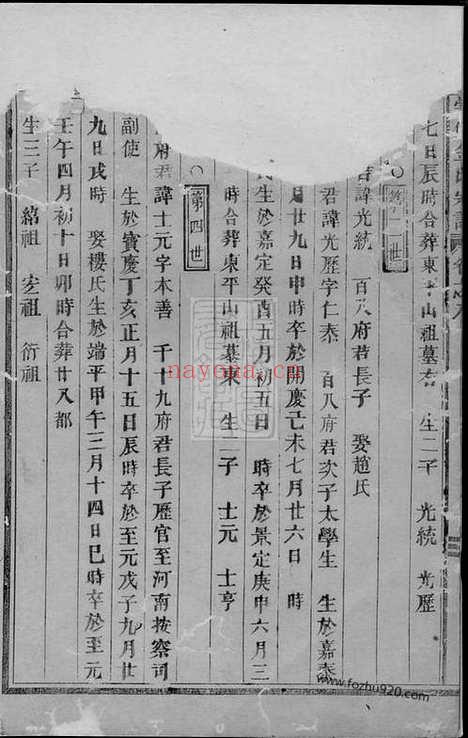 七日辰時合葬東平山祖墓右 生二子 光統 光歷
世
君諱光統 百八府君長子 娶趙氏
君諱光歷字仁泰 百八府君次子太學生 生於嘉泰
月廿九日申時卒於開慶己未七月廿六日 時
氏生於嘉定癸酉五月初五日 時卒於景定庚申六月三
時合葬東平山祖墓東 生二子 士元 士亨
第四世
府君諱士元字木善 千十九府君長子歷官至河南按察司
副使 生於寶慶丁亥正月十五日辰時卒於至元戊子九月廿
九日戌時 娶樓氏生於端平甲午三月十四日巳時卒於至元
壬午四月初十日卯時合葬廿八都
生三子 紹祖 宏祖 衍祖
nayona.cn
www.fozhu920.com